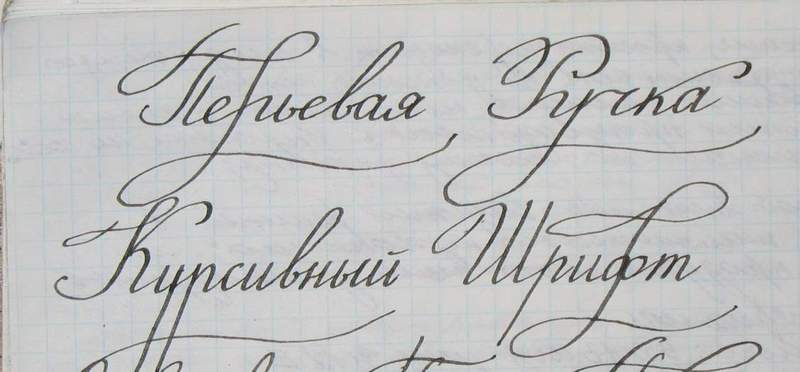 Перьевая Ручка
Курсивный Шрифт